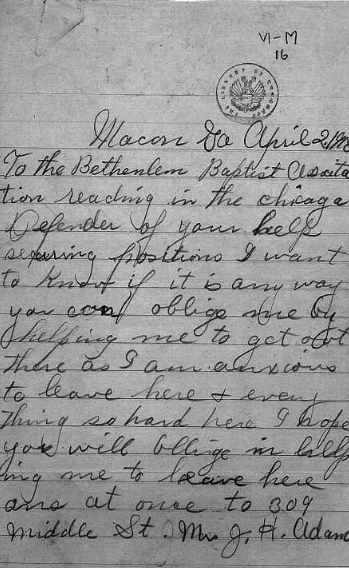 VI-M
16
THE LIBRARY OF CONGRESS
Macon Ga April 2,
To the Bethenlem Baptist Associta
tion reading in the chicaga
Defender of your help
securing positions I want
to know if it is any way
you can oblige me by
helping me to get out
there as I am anxious
to leave here & every
thing so hard here I hope
you will oblige in help
ing me to leave here
ans at once to 309
Middle St. Mrs J. H. Adam